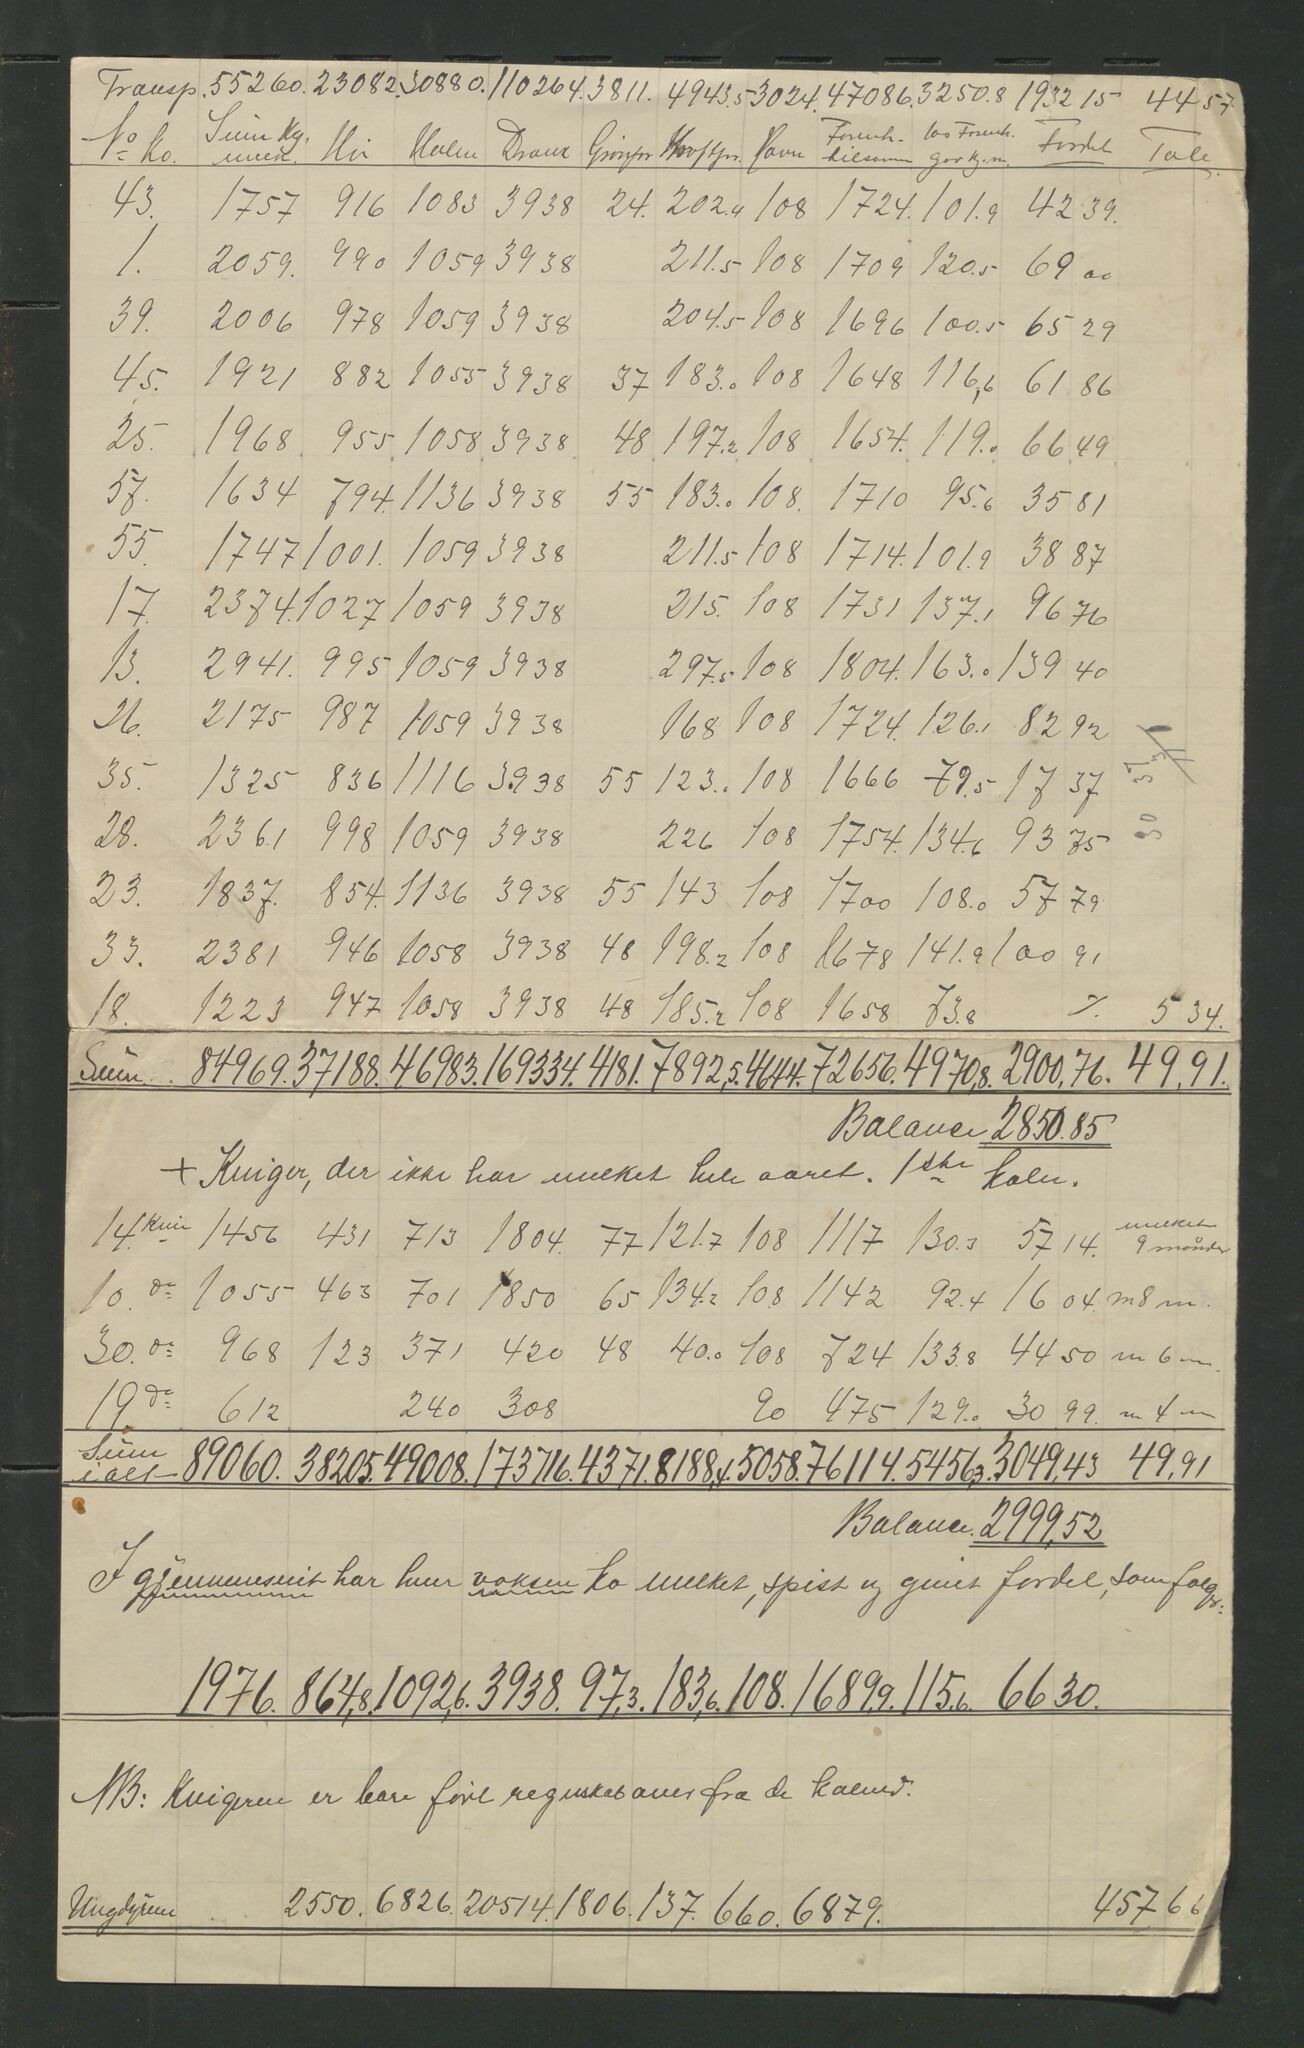 Transp. 55260. 23082. 30880. 110264. 3811. 4943.5 3024. 47086. 3250.8 1932 15 44 57
No Ko. Sum Kg. melk. Höi Halm Drank Grönfor Kraftfor. Havn Forenh. tilsamm 100 Forenh. gav kg. m. Fordel Tale.
43. 1757 916 1083 3938 24. 202.4 108 1724. 101.9 42 39.
1. 2059. 990 1059 3938 211.5 108 1709 120.5 69 00
39. 2006 978 1059 3938 204.5 108 1696 100.5 65 29
45. 1921 882 1055 3938 37 183.0 108 1648 116,6 61 86
25. 1968 955 1058 3938 48 197.2 108 1654. 119.0 66 49
57. 1634 794. 1136 3938 55 183.0 108. 1710 95.6 35 81
55. 1747 1001. 1059 3938 211.5 108 1714. 101.9 38 87
17. 2374. 1027 1059 3938 215. 108 1731 137.1 96 76
13. 2941. 995 1059 3938 297.5 108 1804. 163.0 139 40
26. 2175 987 1059 3938 168 108 1724. 126.1 82 92
35. 1325 836 1116 3938 55 123.0 108 1666 79.5 17 37
28. 2361 998 1059 3938 226 108 1754. 134.6 93 75
23. 1837. 854. 1136 3938 55 143 108 1700 108.0 57 79
33. 2381 946 1058 3938 48 198.2 108 1678 141.9 100 91
18. 1223 947 1058 3938 48 185.2 108 1658 73.8 % 5 34.
Sum 84969. 37188. 46983. 169334. 4181. 7892,5. 4644. 72656. 4970,8. 2900,76. 49,91.
Balance 2850.85
+ Kviger, der ikke har melket hele aaret. 1ste kalv.
14. Kvie 1456 431 713 1804. 77 121.7 108 1117 130.3 57 14. melket 9 månder
10. do 1055 463 701 1850 65 134.2 108 1142 92.4 16 04. m 8 m.
30. do 968 123 371 420 48 40.0 108 724 133.8 44 50 m 6 m.
19 do 612 240 308 90 475 129.0 30 99. m 4 m
Sum ialt 89060. 38205. 49008. 173716. 4371. 8188,4. 5058. 76114. 5456,3. 3049,43 49,91
Balance. 2999,52
I gjennemsnit har hver voksen ko melket, spist og givet fordel, som følger:
1976. 864,8. 1092,6. 3938. 97,3. 183,6. 108. 1689,9. 115,6. 66 30.
NB: Kvigerne er bare fört regnskab over fra de kalved.
Ungdyrene 2550. 6826. 20514. 1806. 137. 660. 6879. 457,66